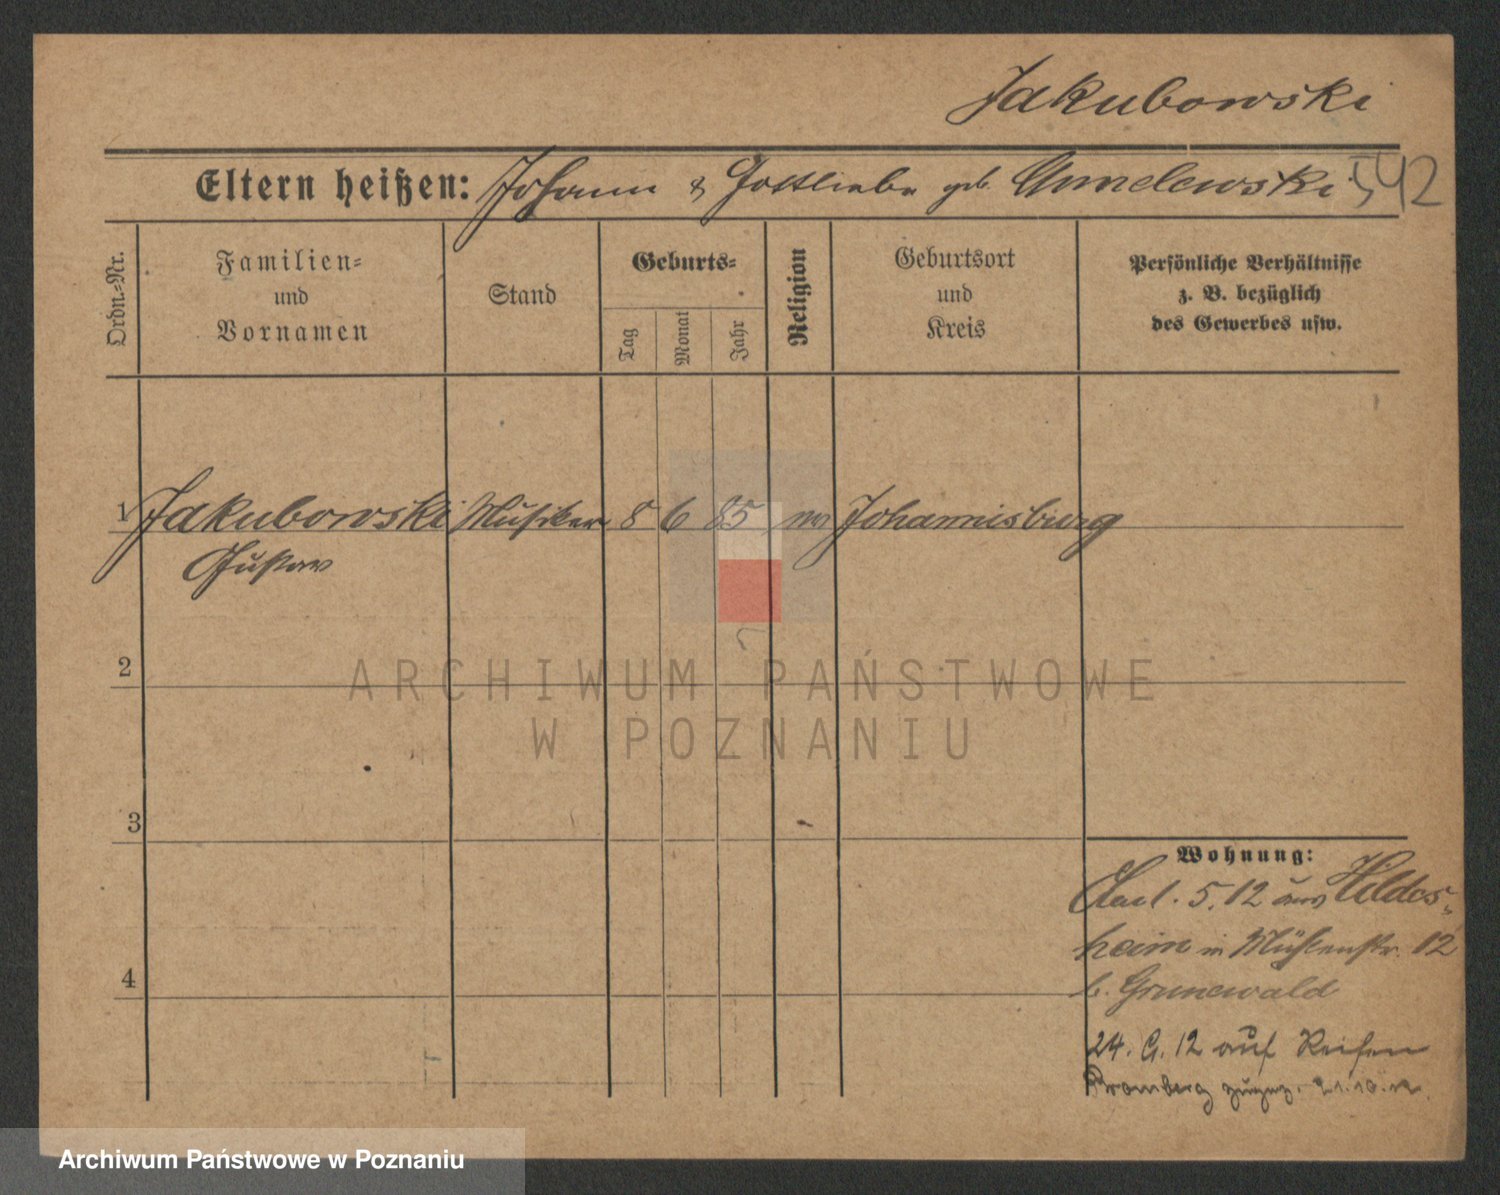 Jakubowski
Eltern heißen: Johann & Gottliebe geb. 542
Ordn.-Nr.
Familien-
und
Vornamen
Stand
Geburts-
Tag
Monat
Jahr
Religion
Geburtsort
und
Kreis
Persönliche Verhältnisse
z. B. bezüglich
des Gewerbes usw.
1 Jakubowski Musiker 8 6 85 Johannisburg
Gustav
2
ARCHIWUM PAŃSTWOWE
W POZNANIU
3
4
Wohnung:
5. 12 aus Hildes-
heim in Mühlenstr. 12
b. Grunewald
24. 12 auf Reisen
Bromberg 21.10.12.
Archiwum Państwowe w Poznaniu